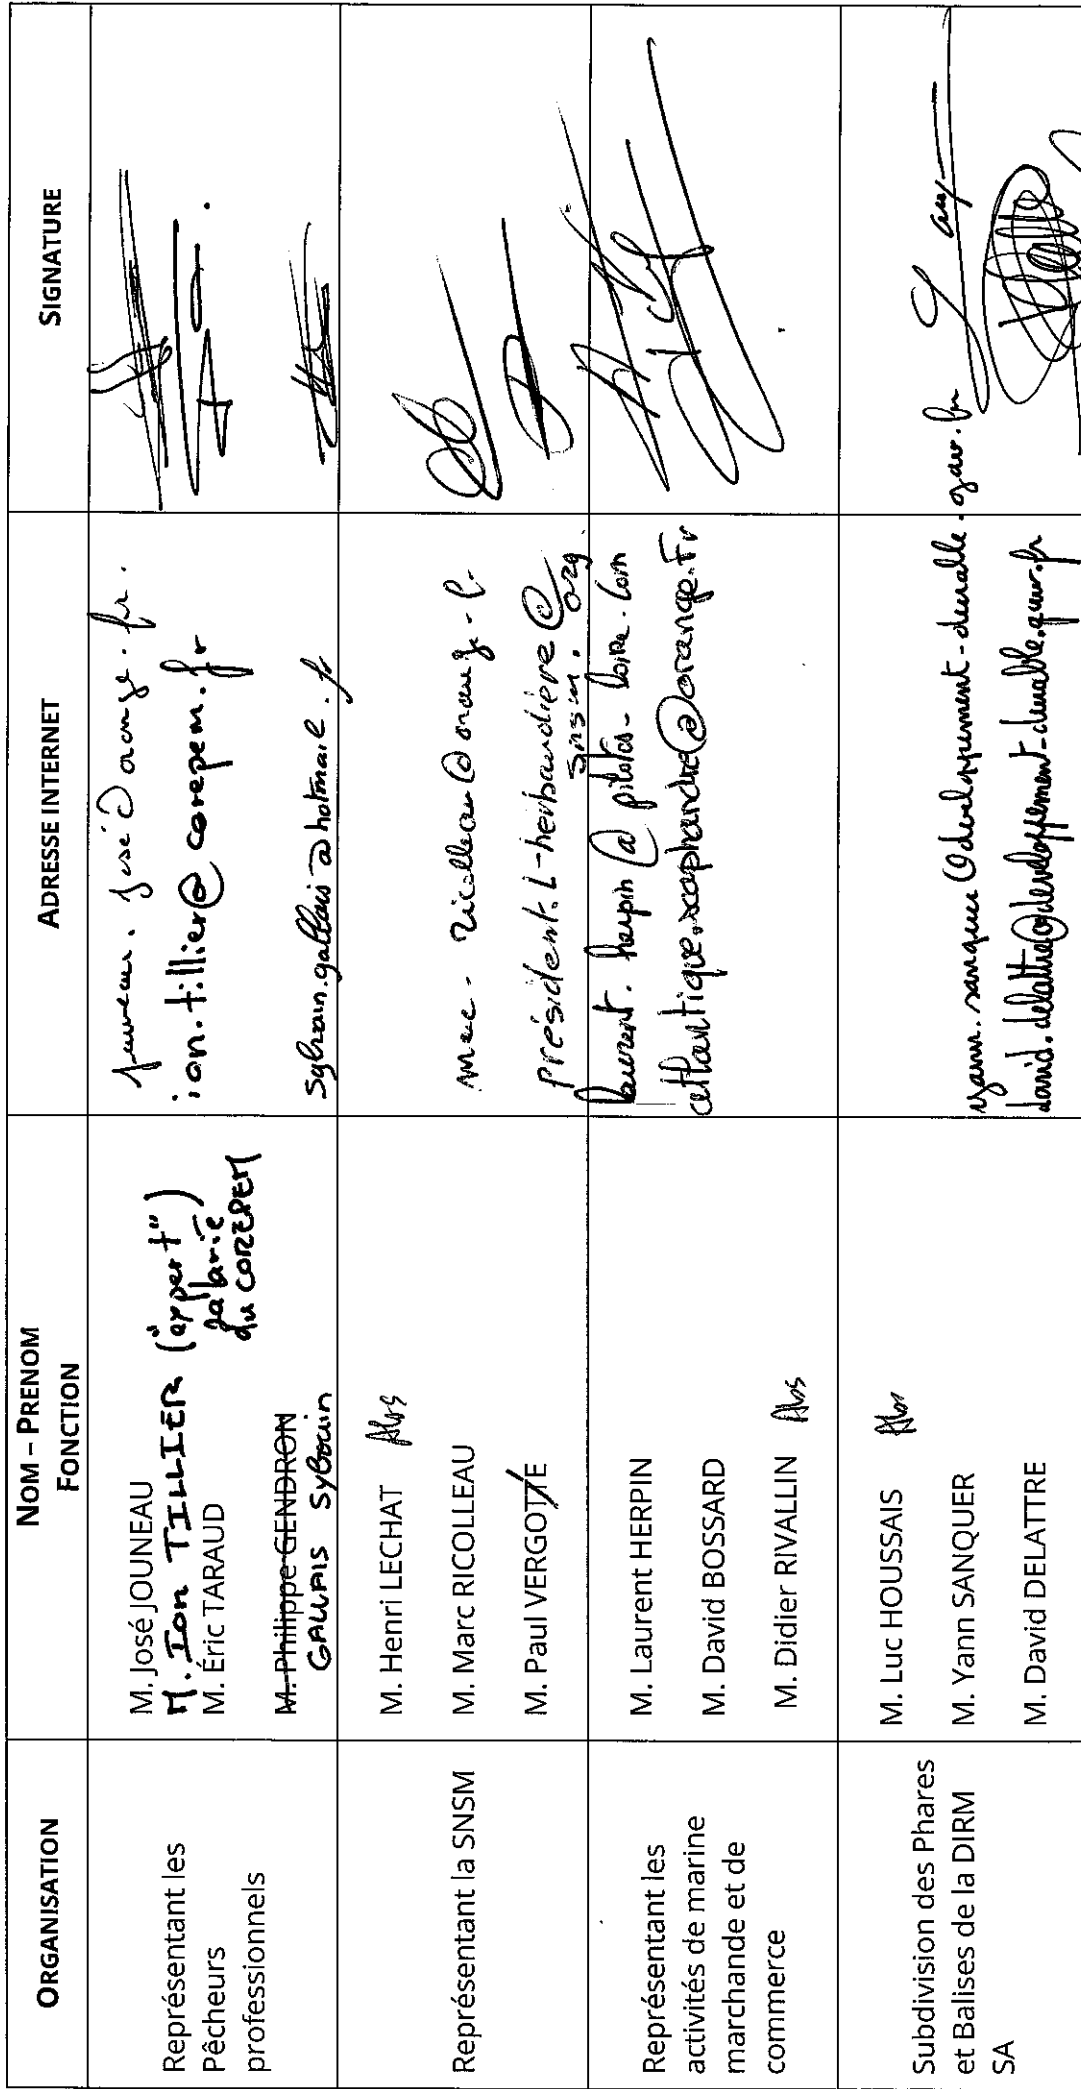 ORGANISATION
NOM – PRENOM
FONCTION
ADRESSE INTERNET
SIGNATURE
Représentant les
Pêcheurs
professionnels
M. José JOUNEAU
M. Ion TILLIER ("expert")
salarié
du COREPEM
M. Éric TARAUD
M. Philippe GENDRON
GALLAIS Sylvain
jouneau.josé@orange.fr.
ion.tillier@corepem.fr
sylvain.gallais@hotmail.fr
Représentant la SNSM
M. Henri LECHAT Abs
M. Marc RICOLLEAU
M. Paul VERGOTTE
marc-ricolleau@orange.fr
Président.L-herbaudiere@
snsm.org
Représentant les
activités de marine
marchande et de
commerce
M. Laurent HERPIN
M. David BOSSARD
M. Didier RIVALLIN Abs
laurent.herpin@pilotes-loire.com
atlantique.scaphandre@orange.Fr
Subdivision des Phares
et Balises de la DIRM
SA
M. Luc HOUSSAIS Abs
M. Yann SANQUER
M. David DELATTRE
yann.sanquer@developpement-durable.gouv.fr
david.delattre@developpement-durable.gouv.fr